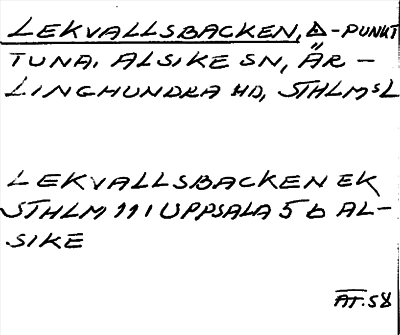 LEKVALLSBACKEN, △-PUNKT
TUNA. ALSIKE SN, ÄR-
LINGHUNDRA HD, STHLMSL
LEKVALLSBACKEN EK
STHLM 11 I UPPSALA 5 b AL-
SIKE
AT.58